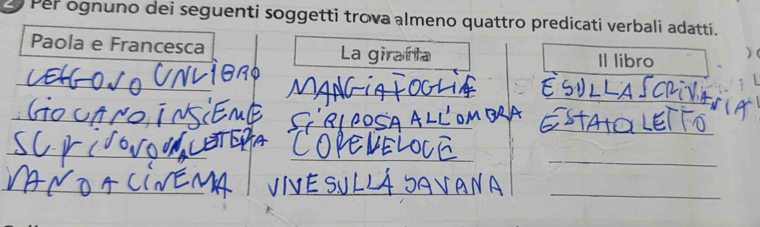 Per ognuno dei seguenti soggetti trova almeno quattro predicati verbali adatti.
Paola e Francesca
LEGGOJO UNLIBRO
GIOCANO, INSIEME
SCrivoNO UNA LETTERA
VANO A CINEMA
La giraffa
MANGIA FOGLIE
SI RIPOSA ALL'OMBRA
CORE VELOCE
VIVE SULLA SAVANA
Il libro
E SULLA SCRIVANIA
E STATO LETTO